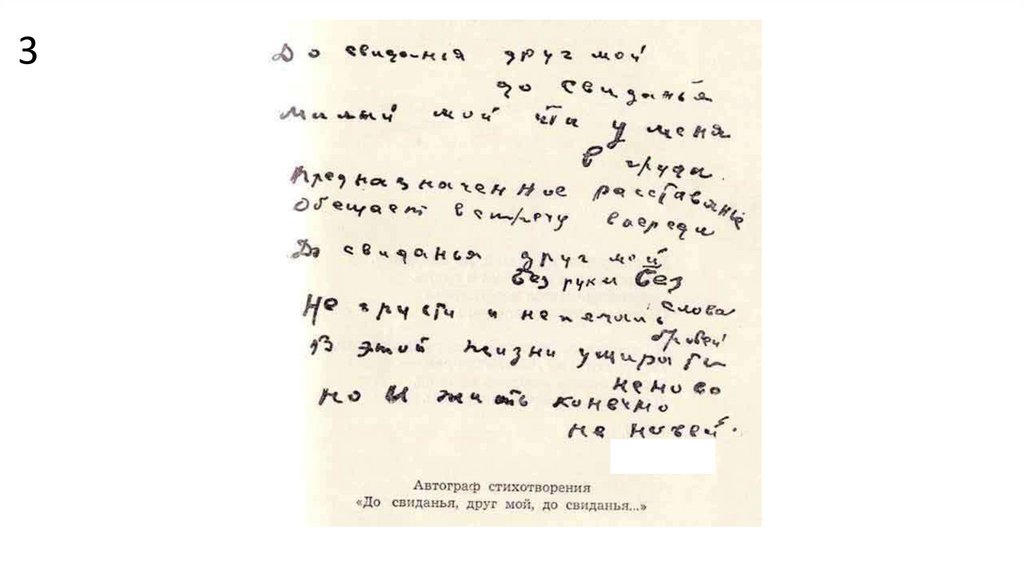 3
До свиданья друг мой
до свиданья
милый мой ты у меня
в груди.
Предназначенное расставанье
Обещает встречу впереди
До свиданья друг мой
без руки без
слова
Не грусти и не печаль
бровей
В этой жизни умирать
не ново
но и жить конечно
не новей.
Автограф стихотворения
«До свиданья, друг мой, до свиданья...»